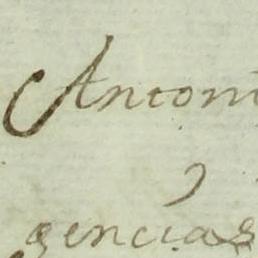 Antoni
gencias